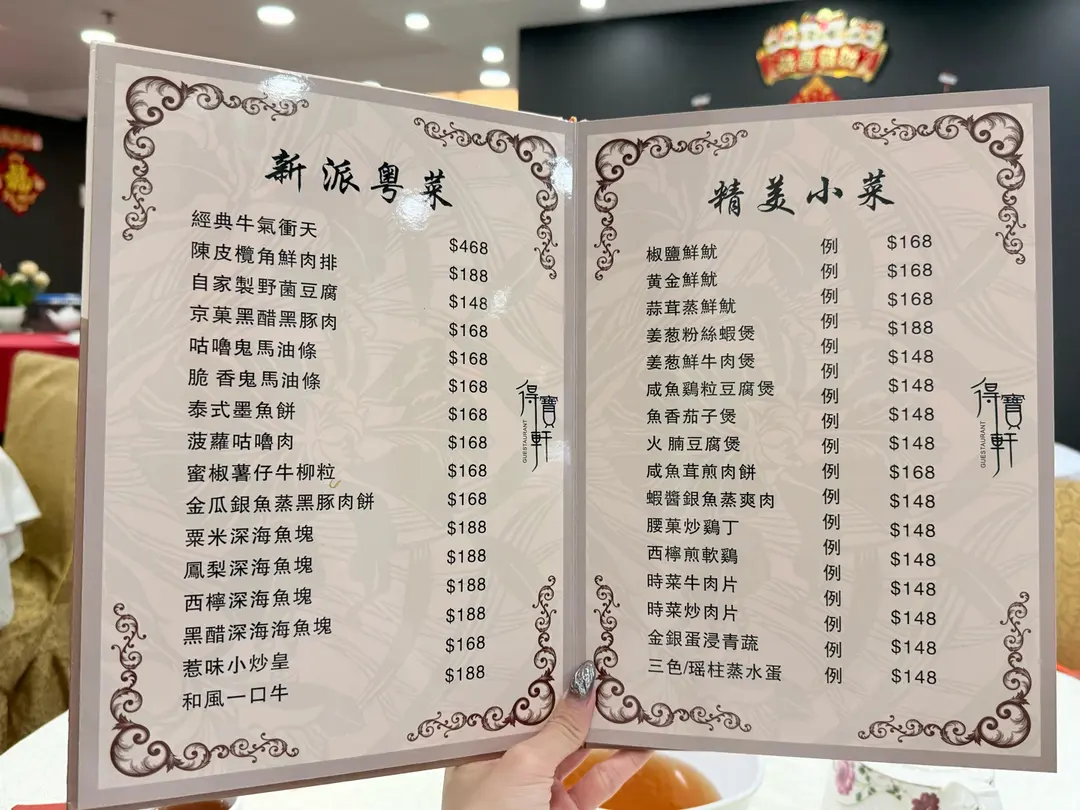 新派粤菜
經典牛氣衝天 $468
陳皮欖角鮮肉排 $188
自家製野菌豆腐 $148
京菓黑醋黑豚肉 $168
咕嚕鬼馬油條 $168
脆 香鬼馬油條 $168
泰式墨魚餅 $168
菠蘿咕嚕肉 $168
蜜椒薯仔牛柳粒 $168
金瓜銀魚蒸黑豚肉餅 $168
粟米深海魚塊 $188
鳳梨深海魚塊 $188
西檸深海魚塊 $188
黑醋深海海魚塊 $188
惹味小炒皇 $168
和風一口牛 $188
得寶軒
GUESTAURANT
精美小菜
椒鹽鮮魷 例 $168
黄金鮮魷 例 $168
蒜茸蒸鮮魷 例 $168
姜葱粉絲蝦煲 例 $188
姜葱鮮牛肉煲 例 $148
咸魚鷄粒豆腐煲 例 $148
魚香茄子煲 例 $148
火腩豆腐煲 例 $148
咸魚茸煎肉餅 例 $168
蝦醬銀魚蒸爽肉 例 $148
腰菓炒鷄丁 例 $148
西檸煎軟鷄 例 $148
時菜牛肉片 例 $148
時菜炒肉片 例 $148
金銀蛋浸青蔬 例 $148
三色/瑶柱蒸水蛋 例 $148
得寶軒
GUESTAURANT